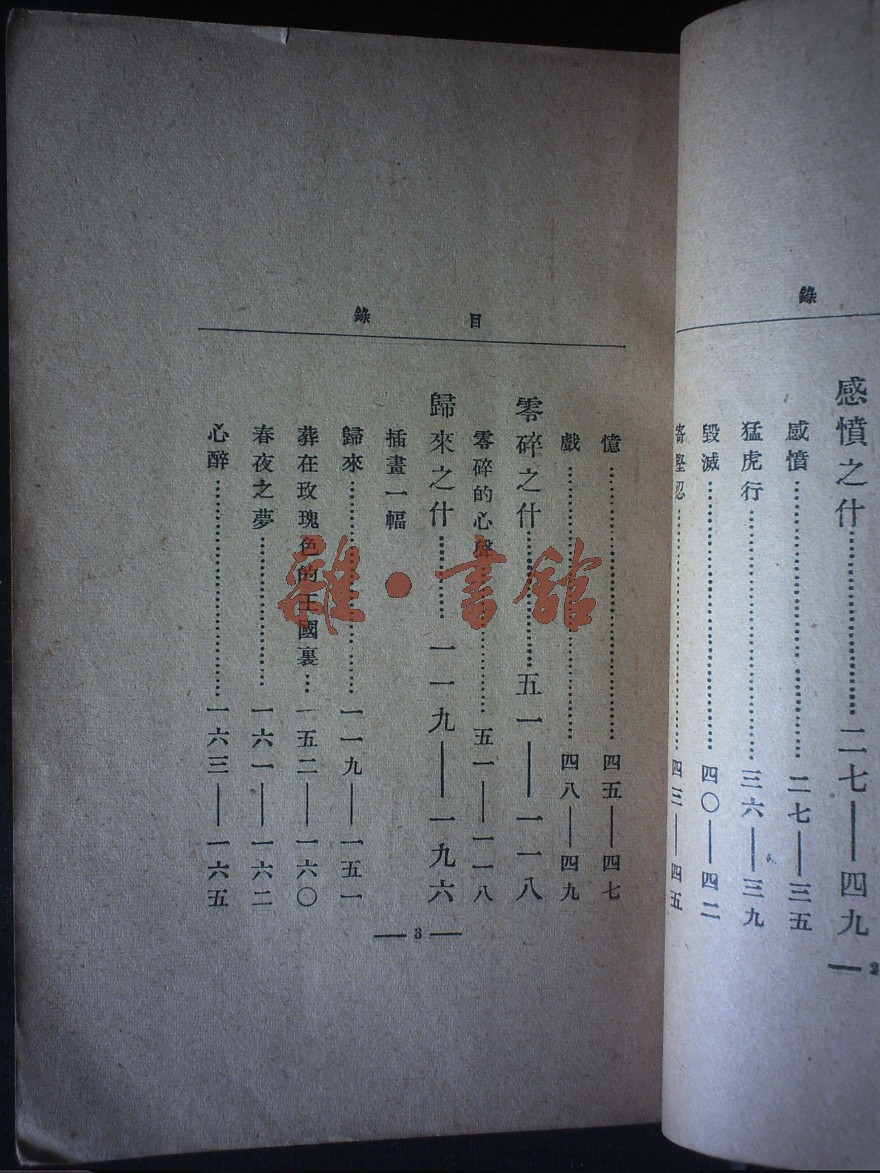 錄
感憤之什……二七——四九
感憤……二七——三五
猛虎行……三六——三九
毀滅……四〇——四二
寄堅忍……四三——四五
2
目錄
憶……四五——四七
戲……四八——四九
零碎之什……五一——一一八
零碎的心聲……五一——一一八
歸來之什……一一九——一九六
插畫一幅
歸來……一一九——一五一
葬在玫瑰色的王國裏…一五二——一六〇
春夜之夢……一六一——一六二
心醉……一六三——一六五
— 3 —
雜·書館